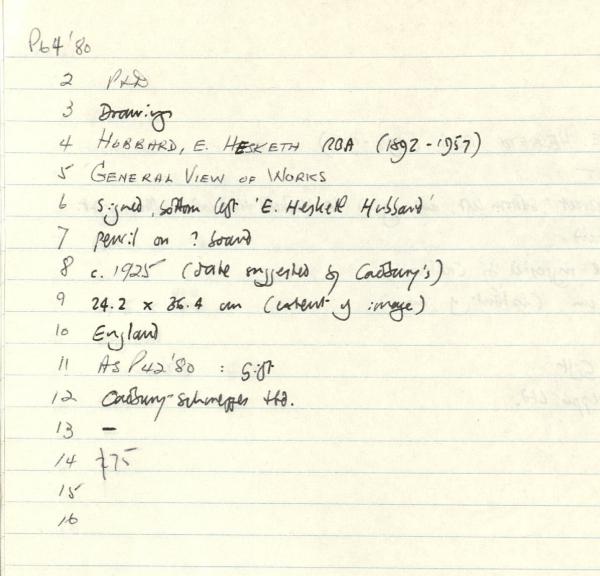 P64'80
2 P&D
3 Drawings
4 HUBBARD, E. HESKETH RBA (1892-1957)
5 GENERAL VIEW OF WORKS
6 Signed, bottom left 'E. Hesketh Hubbard'
7 pencil on ? board
8 c. 1925 (date suggested by Cadbury's)
9 24.2 x 36.4 cm (extent of image)
10 England
11 AS P42'80 : Gift
12 Cadbury-Schweppes Ltd.
13 -
14 £75
15
16